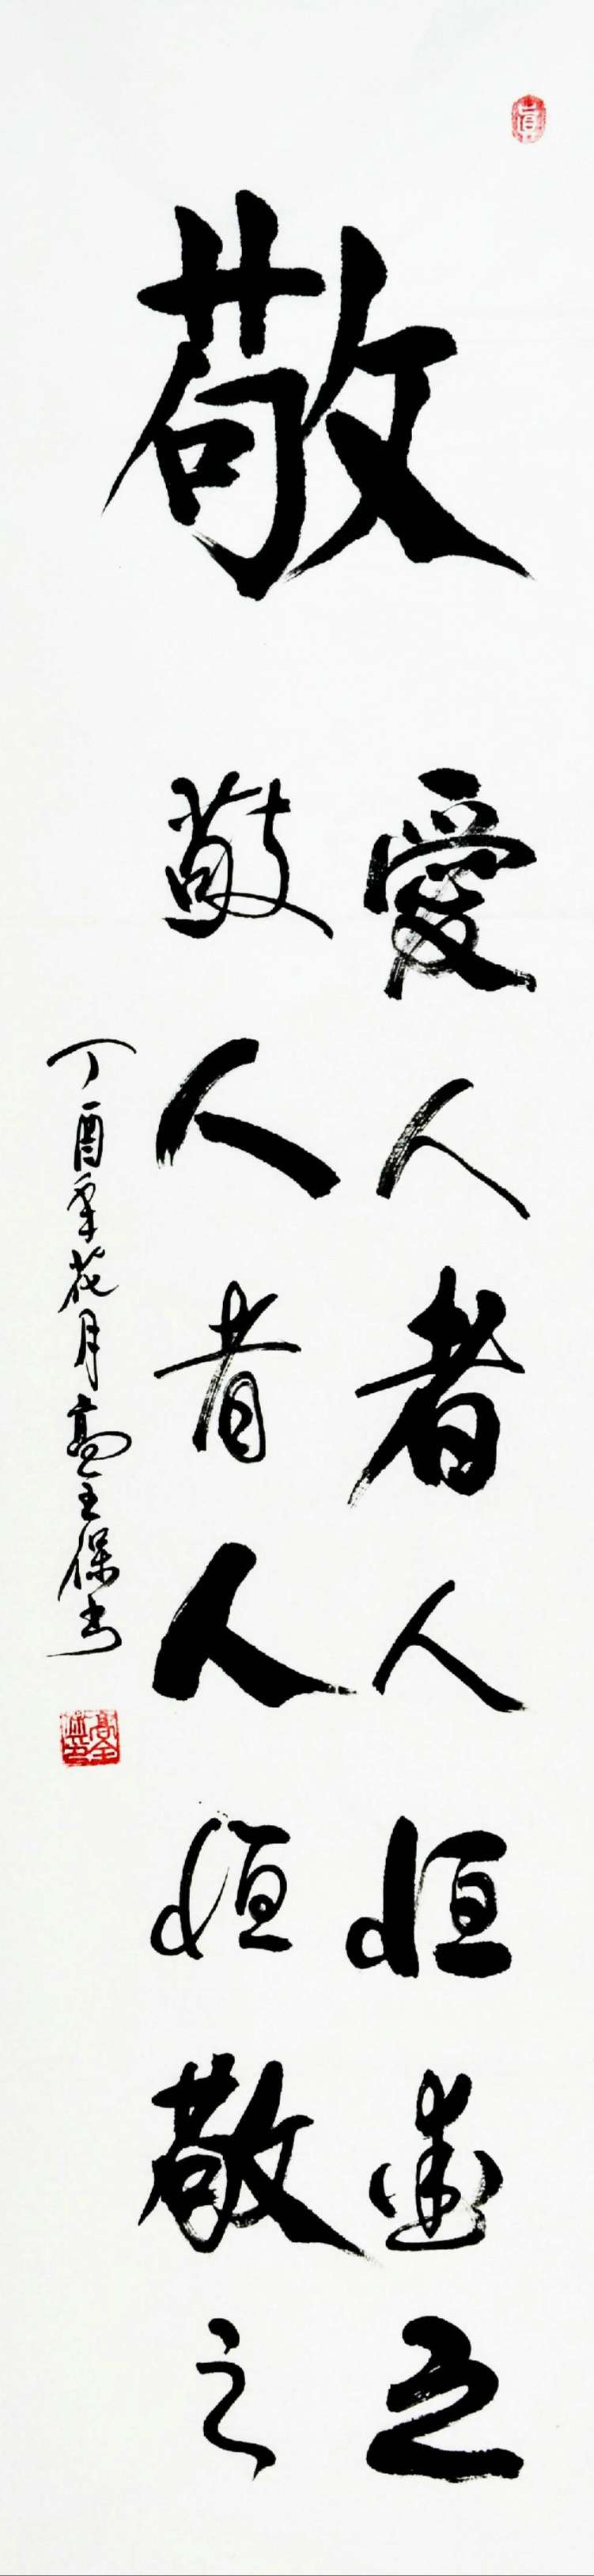 敬
愛人者人恒愛之
敬人者人恒敬之
丁酉年花月高全保书